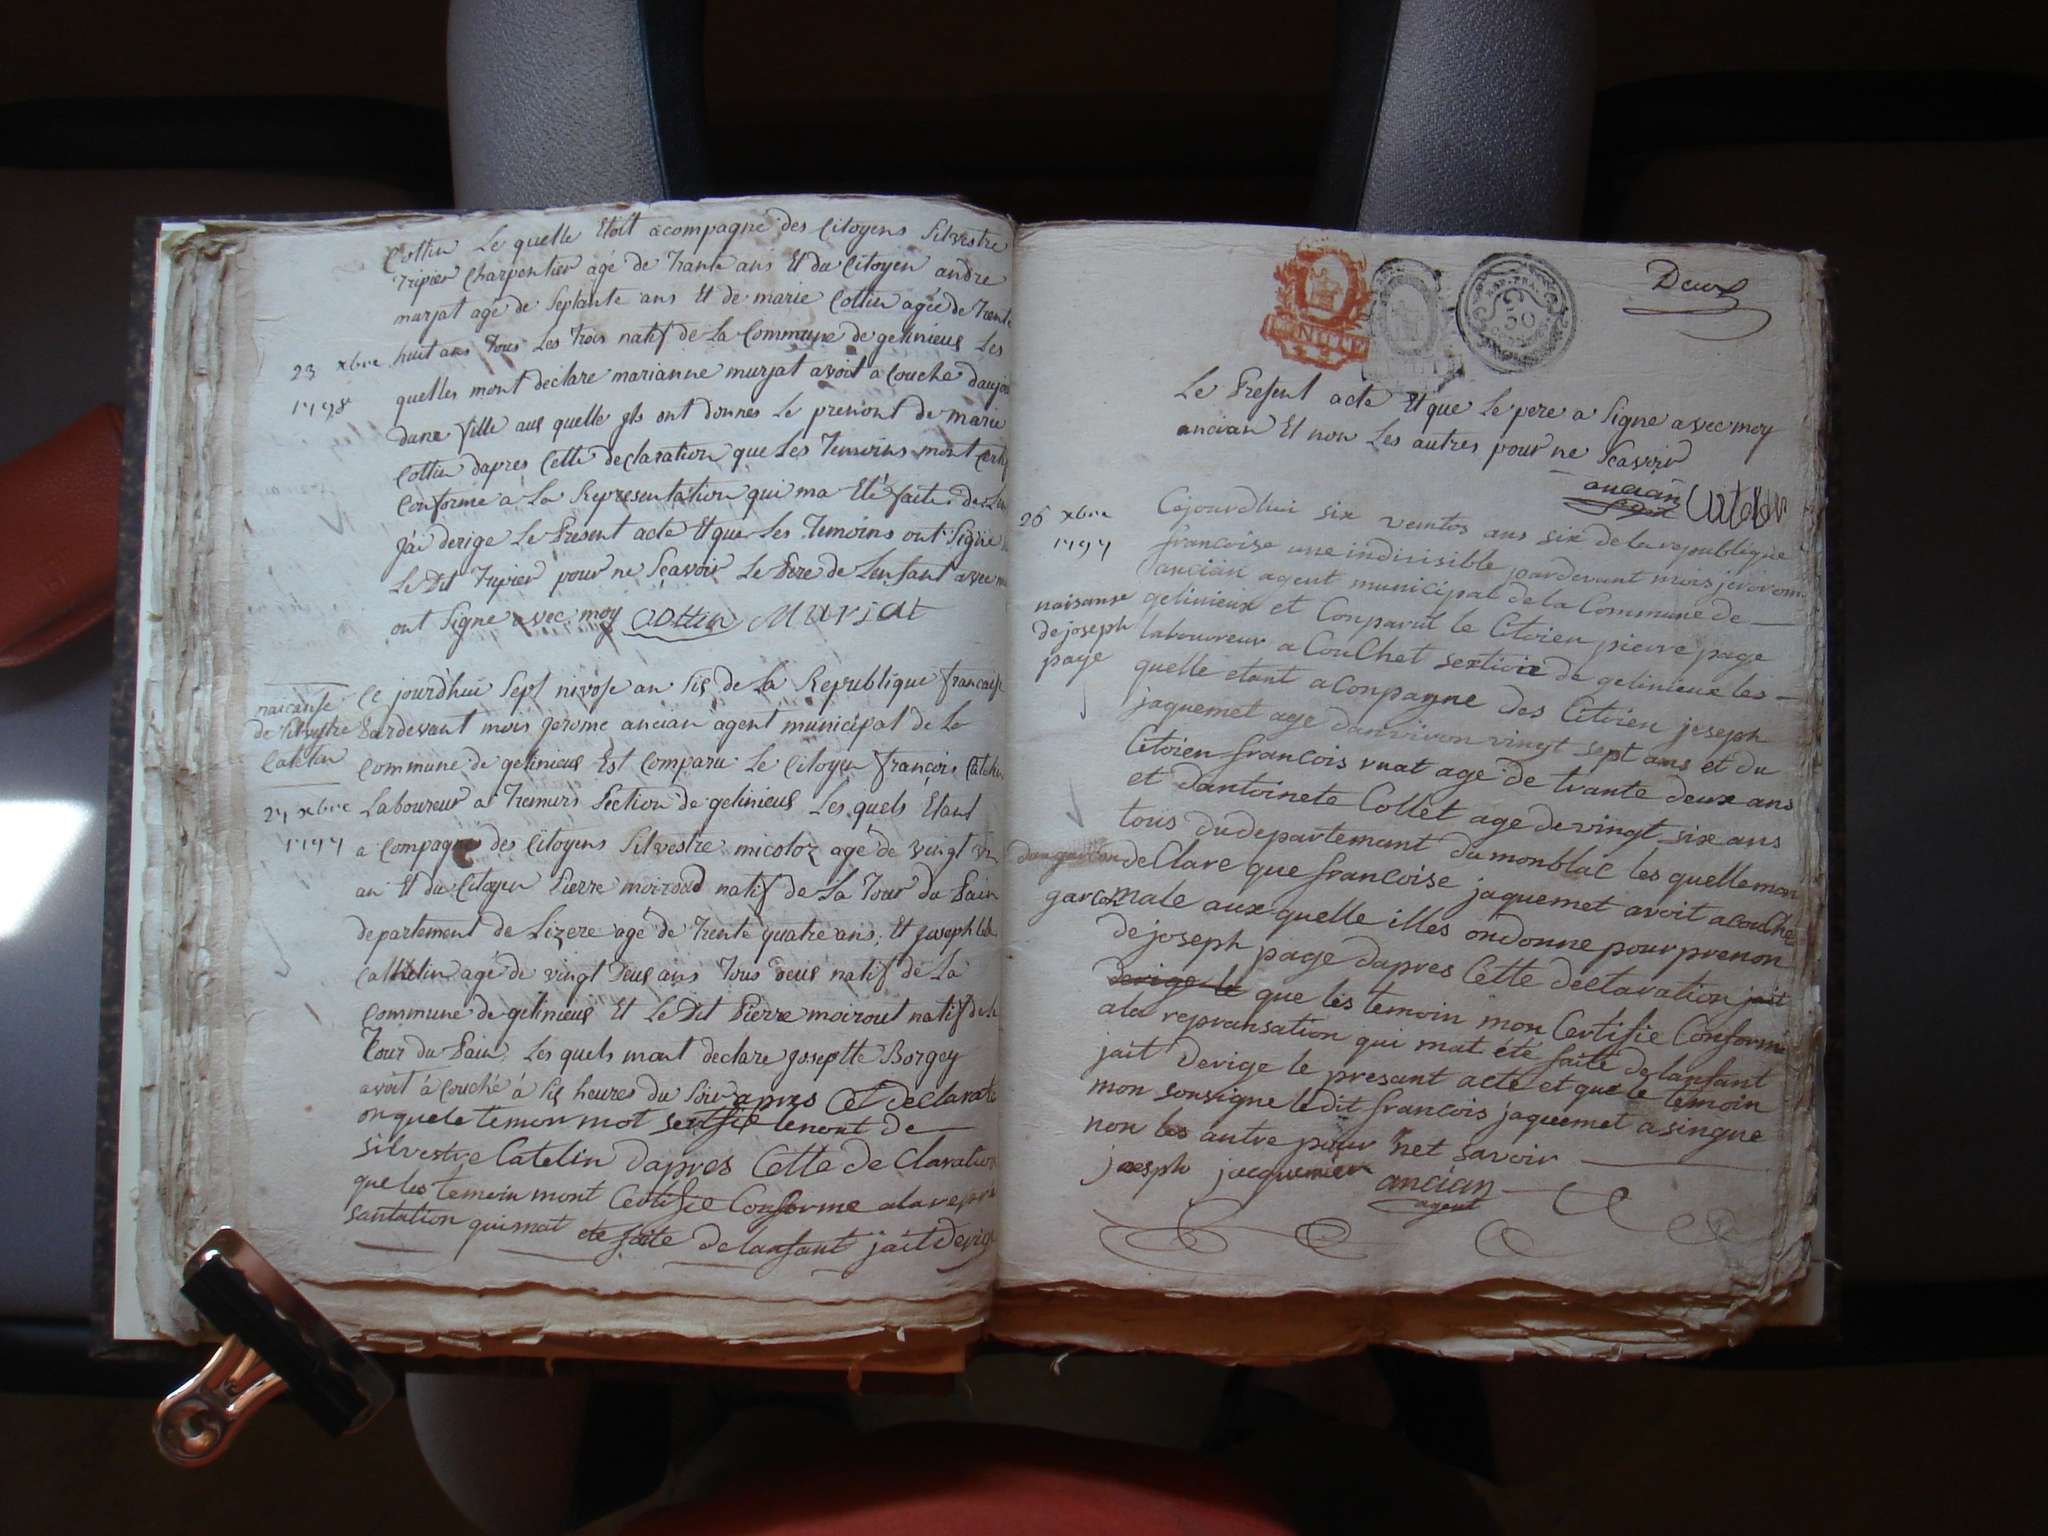 Cottin Le quelle Etoit acompagné des Citoyens Silvestre
Tripier Charpentier agé de Trante ans Et du Citoyen andre
murjat agé de Septante ans Et de marie Cottin agée de Trente
huit ans Tous Les Trois natif de La Commune de gelinieus Les
23 xbre
1798
quelles mont declare marianne murjat avoit a Couche daujour
dune fille aus quelle ils ont donnes Le prenont de marie
Cottin dapres Cette declaration que Les Temoins mont
Conforme a La Representation qui ma Eté faite de
jái derige Le Present acte Et que Les Temoins ont Signé
Le Dit Tripier pour ne Scavoir Le Pere de Lenfant avec
ont Signe avec moy Cottin Murjat
naisanse
de Silvestre
Catelin
27 xbre
1797
Ce jourdhui Sept nivose an Sis de La Republique francaise
Pardevant mois jerome ancian agent municipal de La
Commune de gelinieus Est Comparu Le Citoyen francois
Laboureur a Tremurs Section de gelinieus Les quels Etant
a Compagné des Citoyens Silvestre micoloz agé de vingt
an Et du Citoyen Pierre moiroud natif de La Tour du Pain
departement de Lizere agé de Trente quatre ans, Et joseph
Cathelin agé de vingt Deus ans Tous Deus natif de La
Commune de gelinieus Et Le Dit Pierre moirout natif de la
Tour du Pain Les quels mont declare joseptte Borgey
avoit á Couché á Sis heures du Soir apres Cet declarati
on que le temon mot sertifié lenont de
silvestre Catelin dapres Cette declaration
que les temoin mont Certifié Conforme a la repre
santation qui mat ete faite de lanfant jait Derige
Deux
REP. FRA.
50
Le Present acte Et que Le pere a Signe avec moy
ancian Et non Les autres pour ne Scavoir
ancian
26 xbre
1797
naisanse
de joseph
page
Cejourdhui six ventos ans six de la republique
francoise une indivisible pardevant mois jeromme
ancian agent municipal de la Commune de
gelinieux et Conparut le Citoien pierre page
laboureur a Couchet sextion de gelinieux les
quelle etant aConpagne des Citoien joseph
jaquemet age danviron vingt sept ans et du
Citoien francois vuat age de trante deux ans
et dantoinete Collet age de vingt six ans
tous du departemant du monblac les quelle mon
deClare que francoise jaquemet avoit acouche
garcon male aux quelle illes ondonne pour prenon
de joseph page dapres Cette declaration jait
derige le que les temoin mon Certifie Conforme
a la repransation qui mat été faite de lanfant
jait Derige le presant acte et que le temoin
mon sousigne le dit francois jaquemet a singne
non les autre pour net savoir
joseph jacquemier ancian
agent